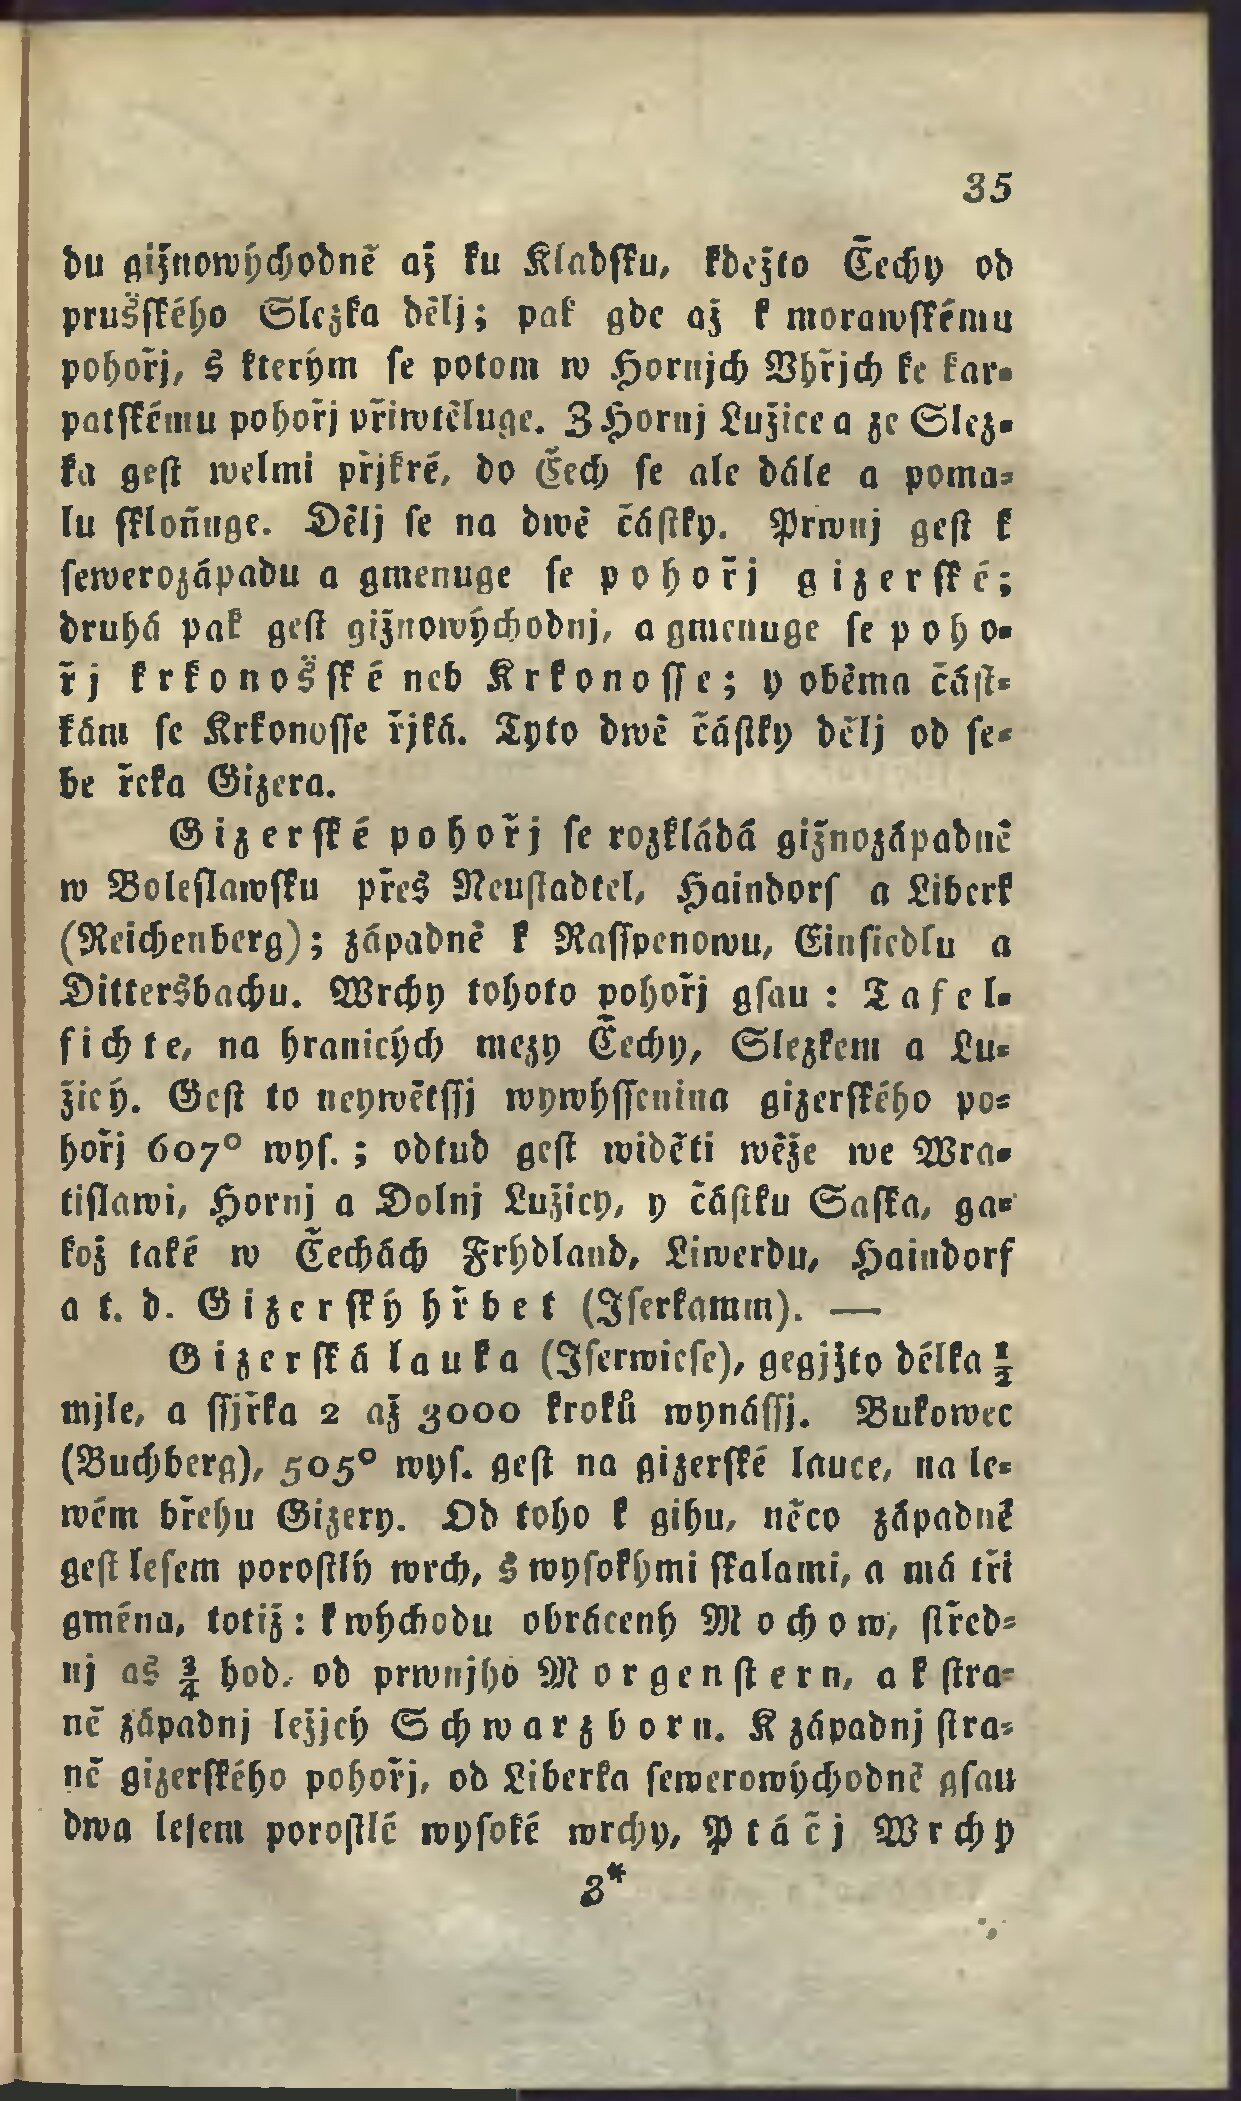 35
du gižnowýchodně až ku Kladſku, kdežto Čechy od
prušſkého Slezka dělj; pak gde až k morawſkému
pohořj, s kterým ſe potom w Hornjch Vhřjch ke kar-
patſkému pohořj přiwtěluge. Z Hornj Lužice a ze Slez-
ka geſt welmi přjkré, do Čech ſe ale dále a poma-
lu ſkloňuge. Dělj ſe na dwě částky. Prwnj geſt k
ſewerozápadu a gmenuge ſe pohořj gizerſké;
druhá pak geſt gižnowýchodnj, a gmenuge ſe poho-
řj krkonošſké neb Krkonoſſe; y oběma čáſt-
kám ſe Krkonoſſe řjká. Tyto dwě čáſtky dělj od ſe-
be řeka Gizera.
Gizerſké pohořj ſe rozkládá gižnozápadně
w Boleſlawſku přes Neuſtadtel, Haindorf a Liberk
(Reichenberg); západně k Raſſpenowu, Einſiedlu a
Dittersbachu. Wrchy tohoto pohořj gſau: Tafel-
fichte, na hranicých mezy Čechy, Slezkem a Lu-
žicý. Geſt to neywětſſj wywýſſenina gizerſkého po-
hořj 607° wyſ.; odtud geſt widěti wěže we Wra-
tiſlawi, Hornj a Dolnj Lužicy, y čáſtku Saſka, ga-
kož také w Čechách Frýdland, Liwerdu, Haindorf
a t. d. Gizerſký hřbet (Iſerkamm). —
Gizerſká lauka (Iſerwieſe), gegjžto délka ½
mjle, a ſſjřka 2 až 3000 kroků wynáſſj. Bukowec
(Buchberg), 505° wyſ. geſt na gizerſké lauce, na le-
wém břehu Gizery. Od toho k gihu, něco západně
geſt leſem poroſtlý wrch, s wyſokými ſkalami, a má tři
gména, totiž: k wýchodu obrácený Mochow, ſtřed-
nj as ¾ hod. od prwnjho Morgenſtern, a k ſtra-
ně západnj ležjcý Schwarzborn. K západnj ſtra-
ně gizerſkého pohořj, od Liberka ſewerowýchodně gſau
dwa leſem poroſtlé wyſoké wrchy, Ptáčj Wrchy
3*